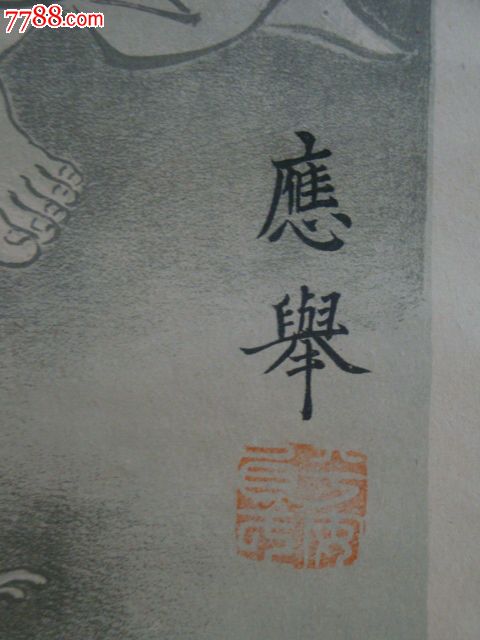 7788.com
應
舉